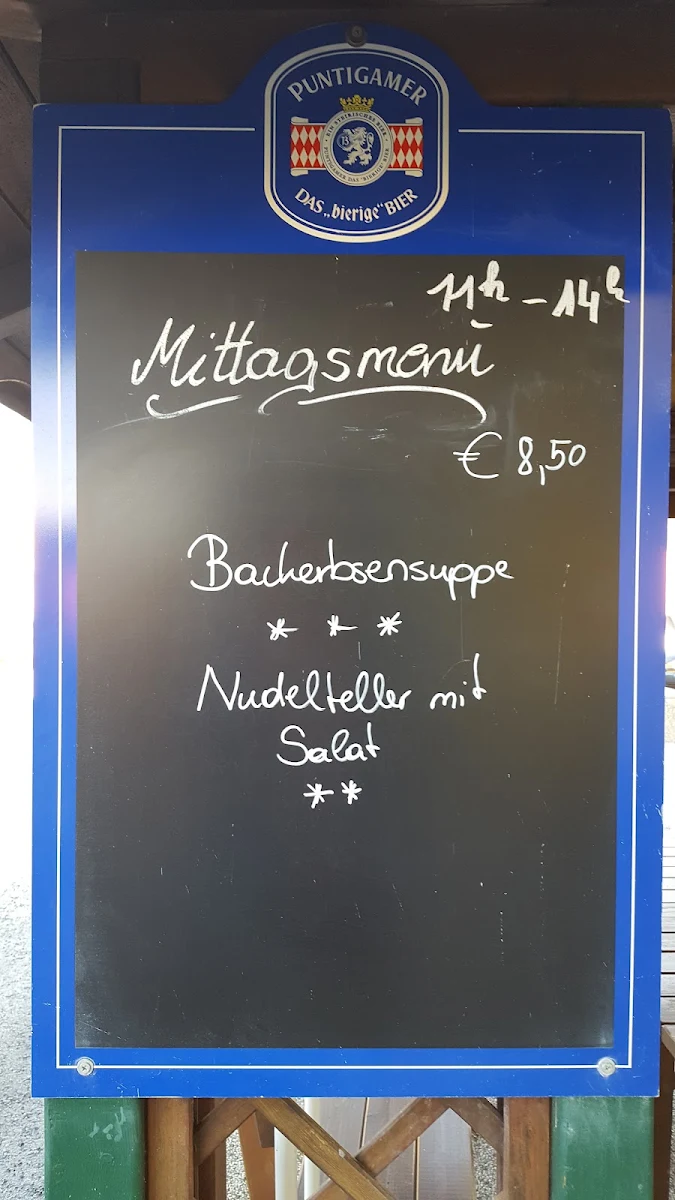 PUNTIGAMER
EIN STEIRISCHES BIER
PUNTIGAMER DAS "BIERIGE" BIER
DAS „bierige“ BIER
11h - 14h
Mittagsmenü
€ 8,50
Backerbsensuppe
* * *
Nudelteller mit
Salat
* *